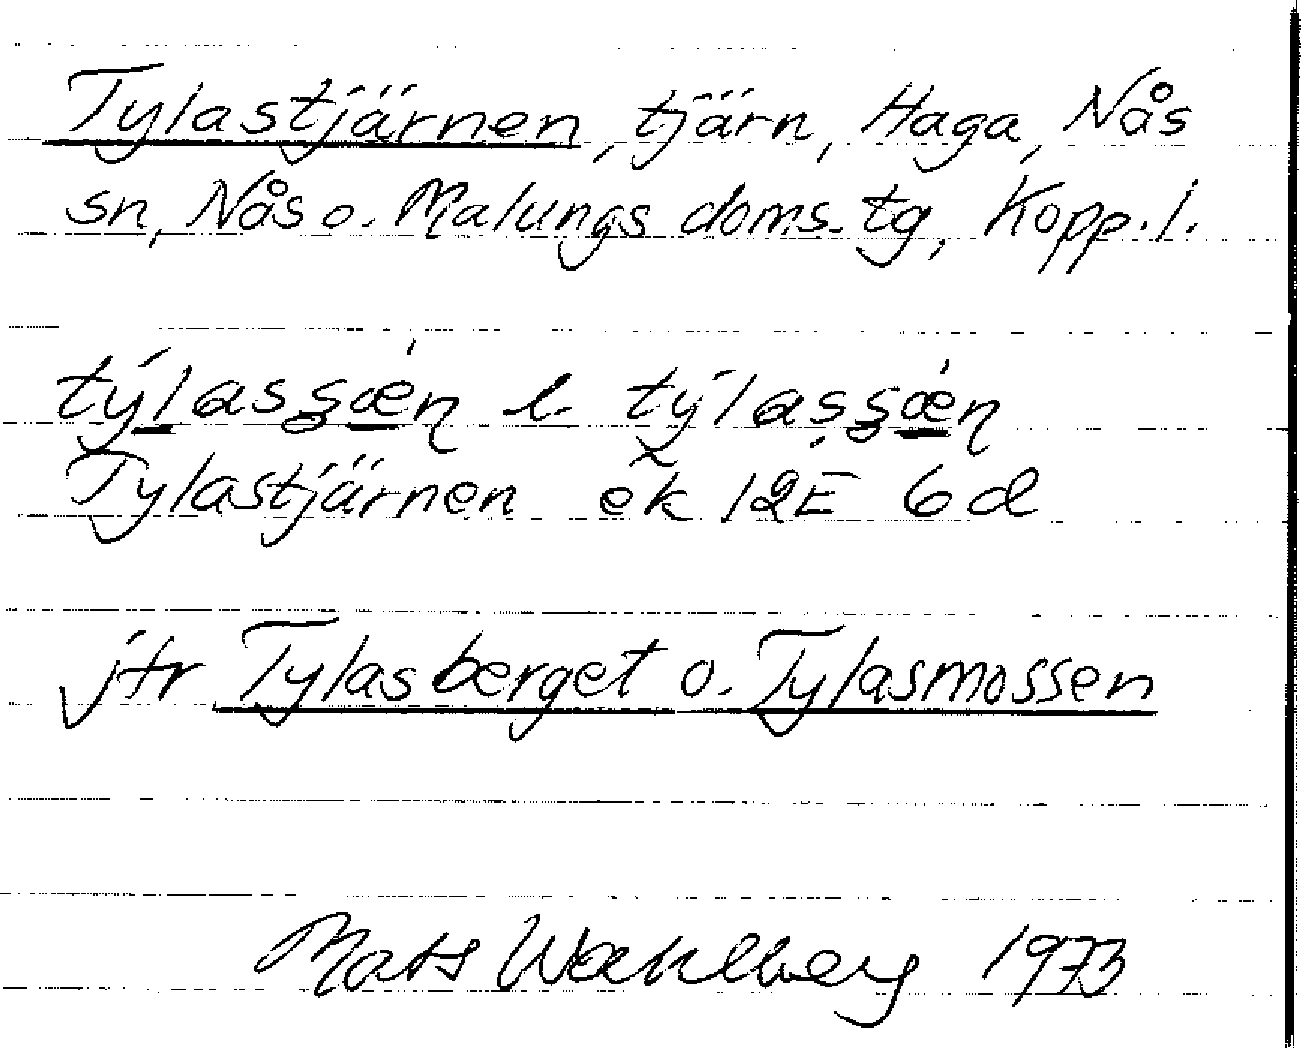 Tylastjärnen, tjärn, Haga, Nås
sn, Nås o. Malungs doms. tg, Kopp. l.
týlasʂǽn l. týlasʂǽn
Tylastjärnen ek 12E 6d
jfr Tylasberget o. Tylasmossen
Mats Wahlberg 1973